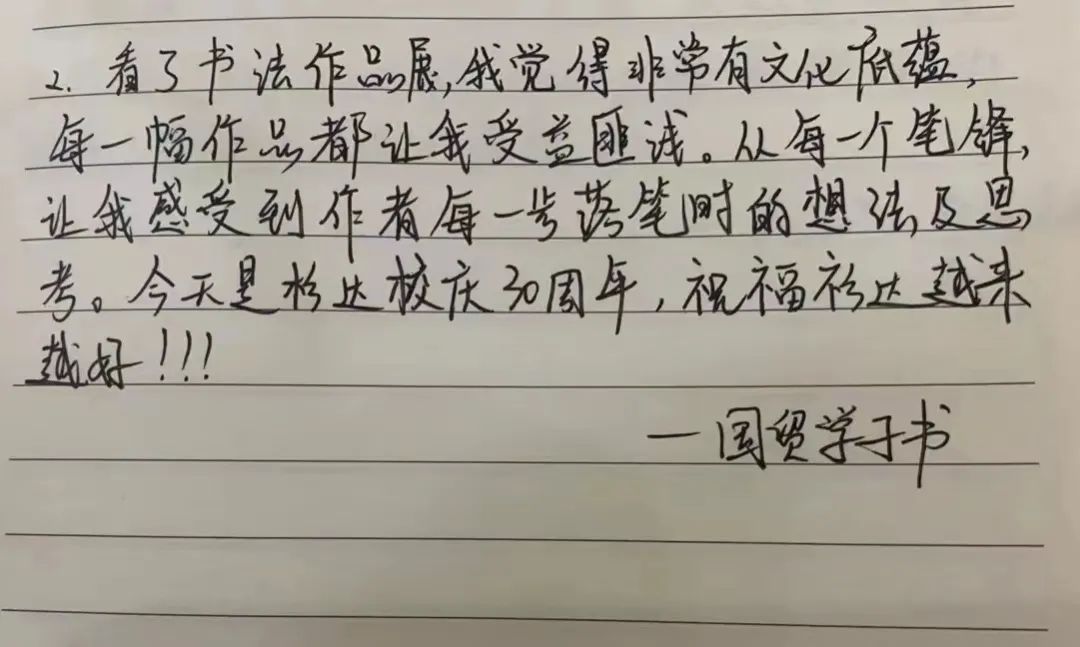 2. 看了书法作品展,我觉得非常有文化底蕴,
每一幅作品都让我受益匪浅。从每一个笔锋,
让我感受到作者每一步落笔时的想法及思
考。今天是杉达校庆30周年,祝福杉达越来
越好!!!
—国贸学子书